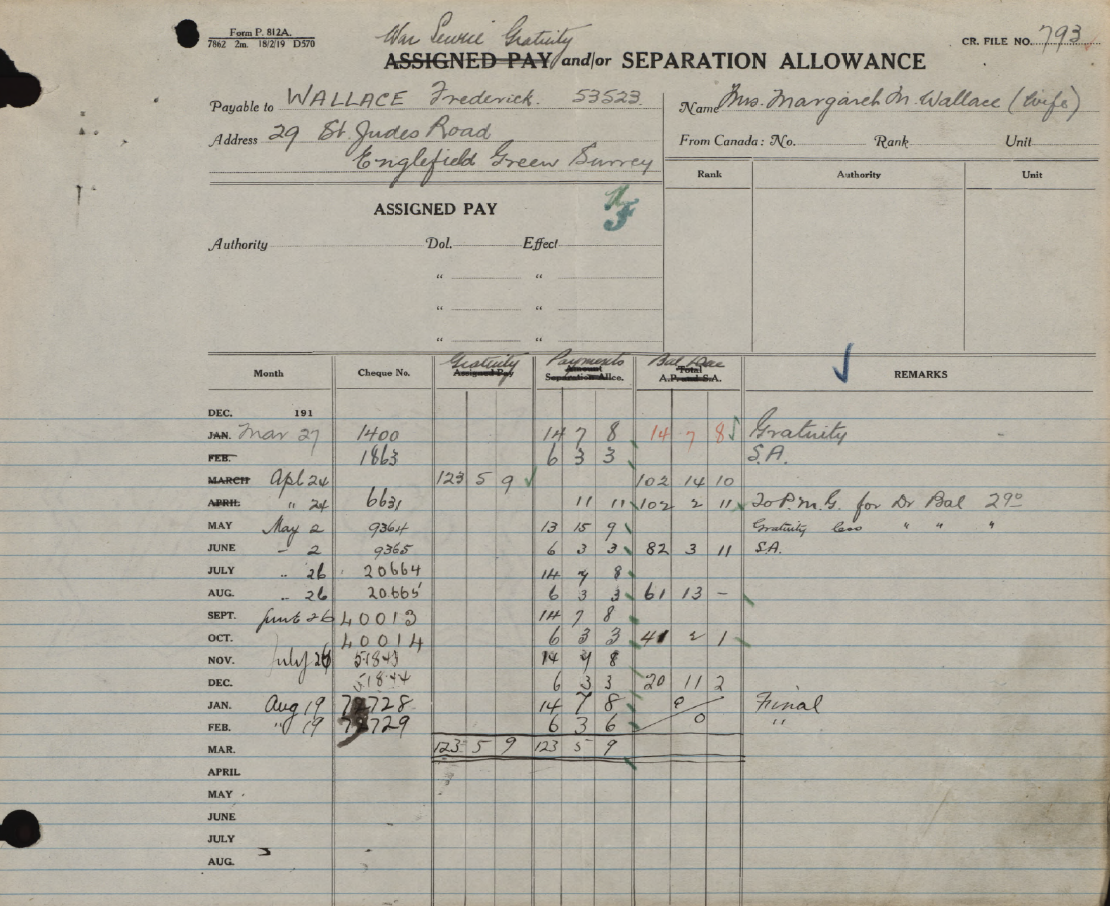 Form P. 812A.
7862 2m. 18/2/19 D570
War Servic Gratuity
CR. FILE NO. 793
ASSIGNED PAY and/or SEPARATION ALLOWANCE
Payable to WALLACE Frederick. 53523
Name Mrs. Margaret M. Wallace (Wife)
Address 29 St. Judes Road
From Canada: No. Rank Unit
Englefield Green Surrey
Rank Authority Unit
ASSIGNED PAY
Authority Dol. Effect
" "
" "
" "
Gratuity Payments Bal Due
Month Cheque No. Assigned Pay Amount Separation Allce. Total A.P. and S.A. REMARKS
DEC. 191
JAN. Mar 27 1400 14 7 8 14 7 8 Gratuity
FEB. 1863 6 3 3 S.A.
MARCH Apl 24 123 5 9 102 14 10
APRIL " 24 6631 11 11 102 2 11 To P.M.G. for Dr Bal 29º
MAY May 2 9364 13 15 9 Gratuity less " " "
JUNE - 2 9365 6 3 3 82 3 11 S.A.
JULY " 26 20664 14 7 8
AUG. " 26 20665 6 3 3 61 13 -
SEPT. June 26 40013 14 7 8
OCT. 40014 6 3 3 41 2 1
NOV. July 26 51843 14 7 8
DEC. 51844 6 3 3 20 11 2
JAN. Aug 19 72728 14 7 8 0 Final
FEB. " 19 72729 6 3 6 0 "
MAR. 123 5 9 123 5 9
APRIL
MAY
JUNE
JULY
AUG.